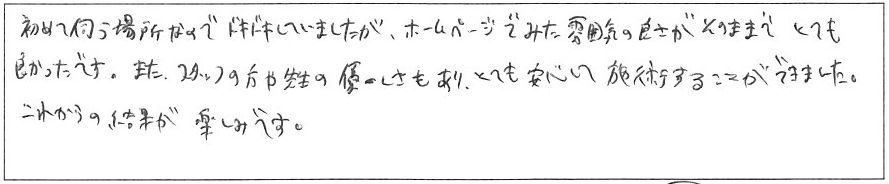 初めて伺う場所なのでドキドキしていましたが、ホームページでみた雰囲気の良さがそのままでとても
良かったです。また、スタッフの方や先生の優しさもあり、とても安心して施術することができました。
これからの結果が楽しみです。